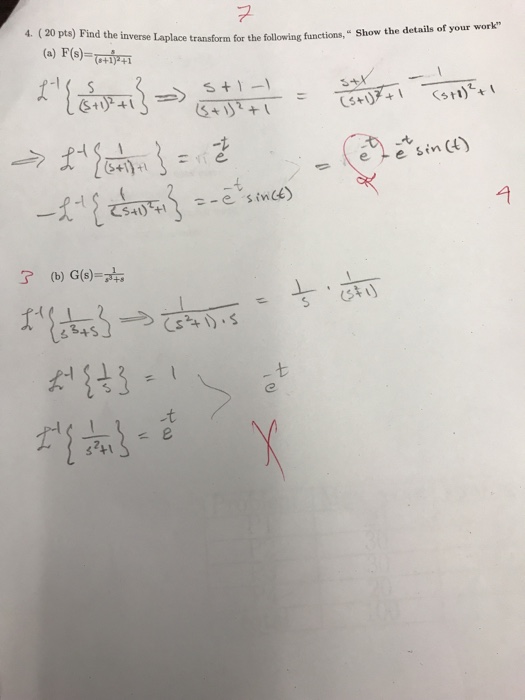 7
4. ( 20 pts) Find the inverse Laplace transform for the following functions, " Show the details of your work"
(a) F(s)= s/((s+1)²+1)
ℒ⁻¹{ s/((s+1)²+1) } ⟹ (s+1-1)/((s+1)²+1) = (s+1)/((s+1)²+1) - 1/((s+1)²+1)
⟹ ℒ⁻¹{ 1/((s+1)+1) } = e^-t = e^-t - e^-t sin(t)
-ℒ⁻¹{ 1/((s+1)²+1) } = -e^-t sin(t)
4
3 (b) G(s)= 1/(s³+s)
ℒ⁻¹{ 1/(s³+s) } ⟹ 1/((s²+1)·s) = 1/s · 1/(s²+1)
ℒ⁻¹{ 1/s } = 1 > e^-t
ℒ⁻¹{ 1/(s²+1) } = e^-t X